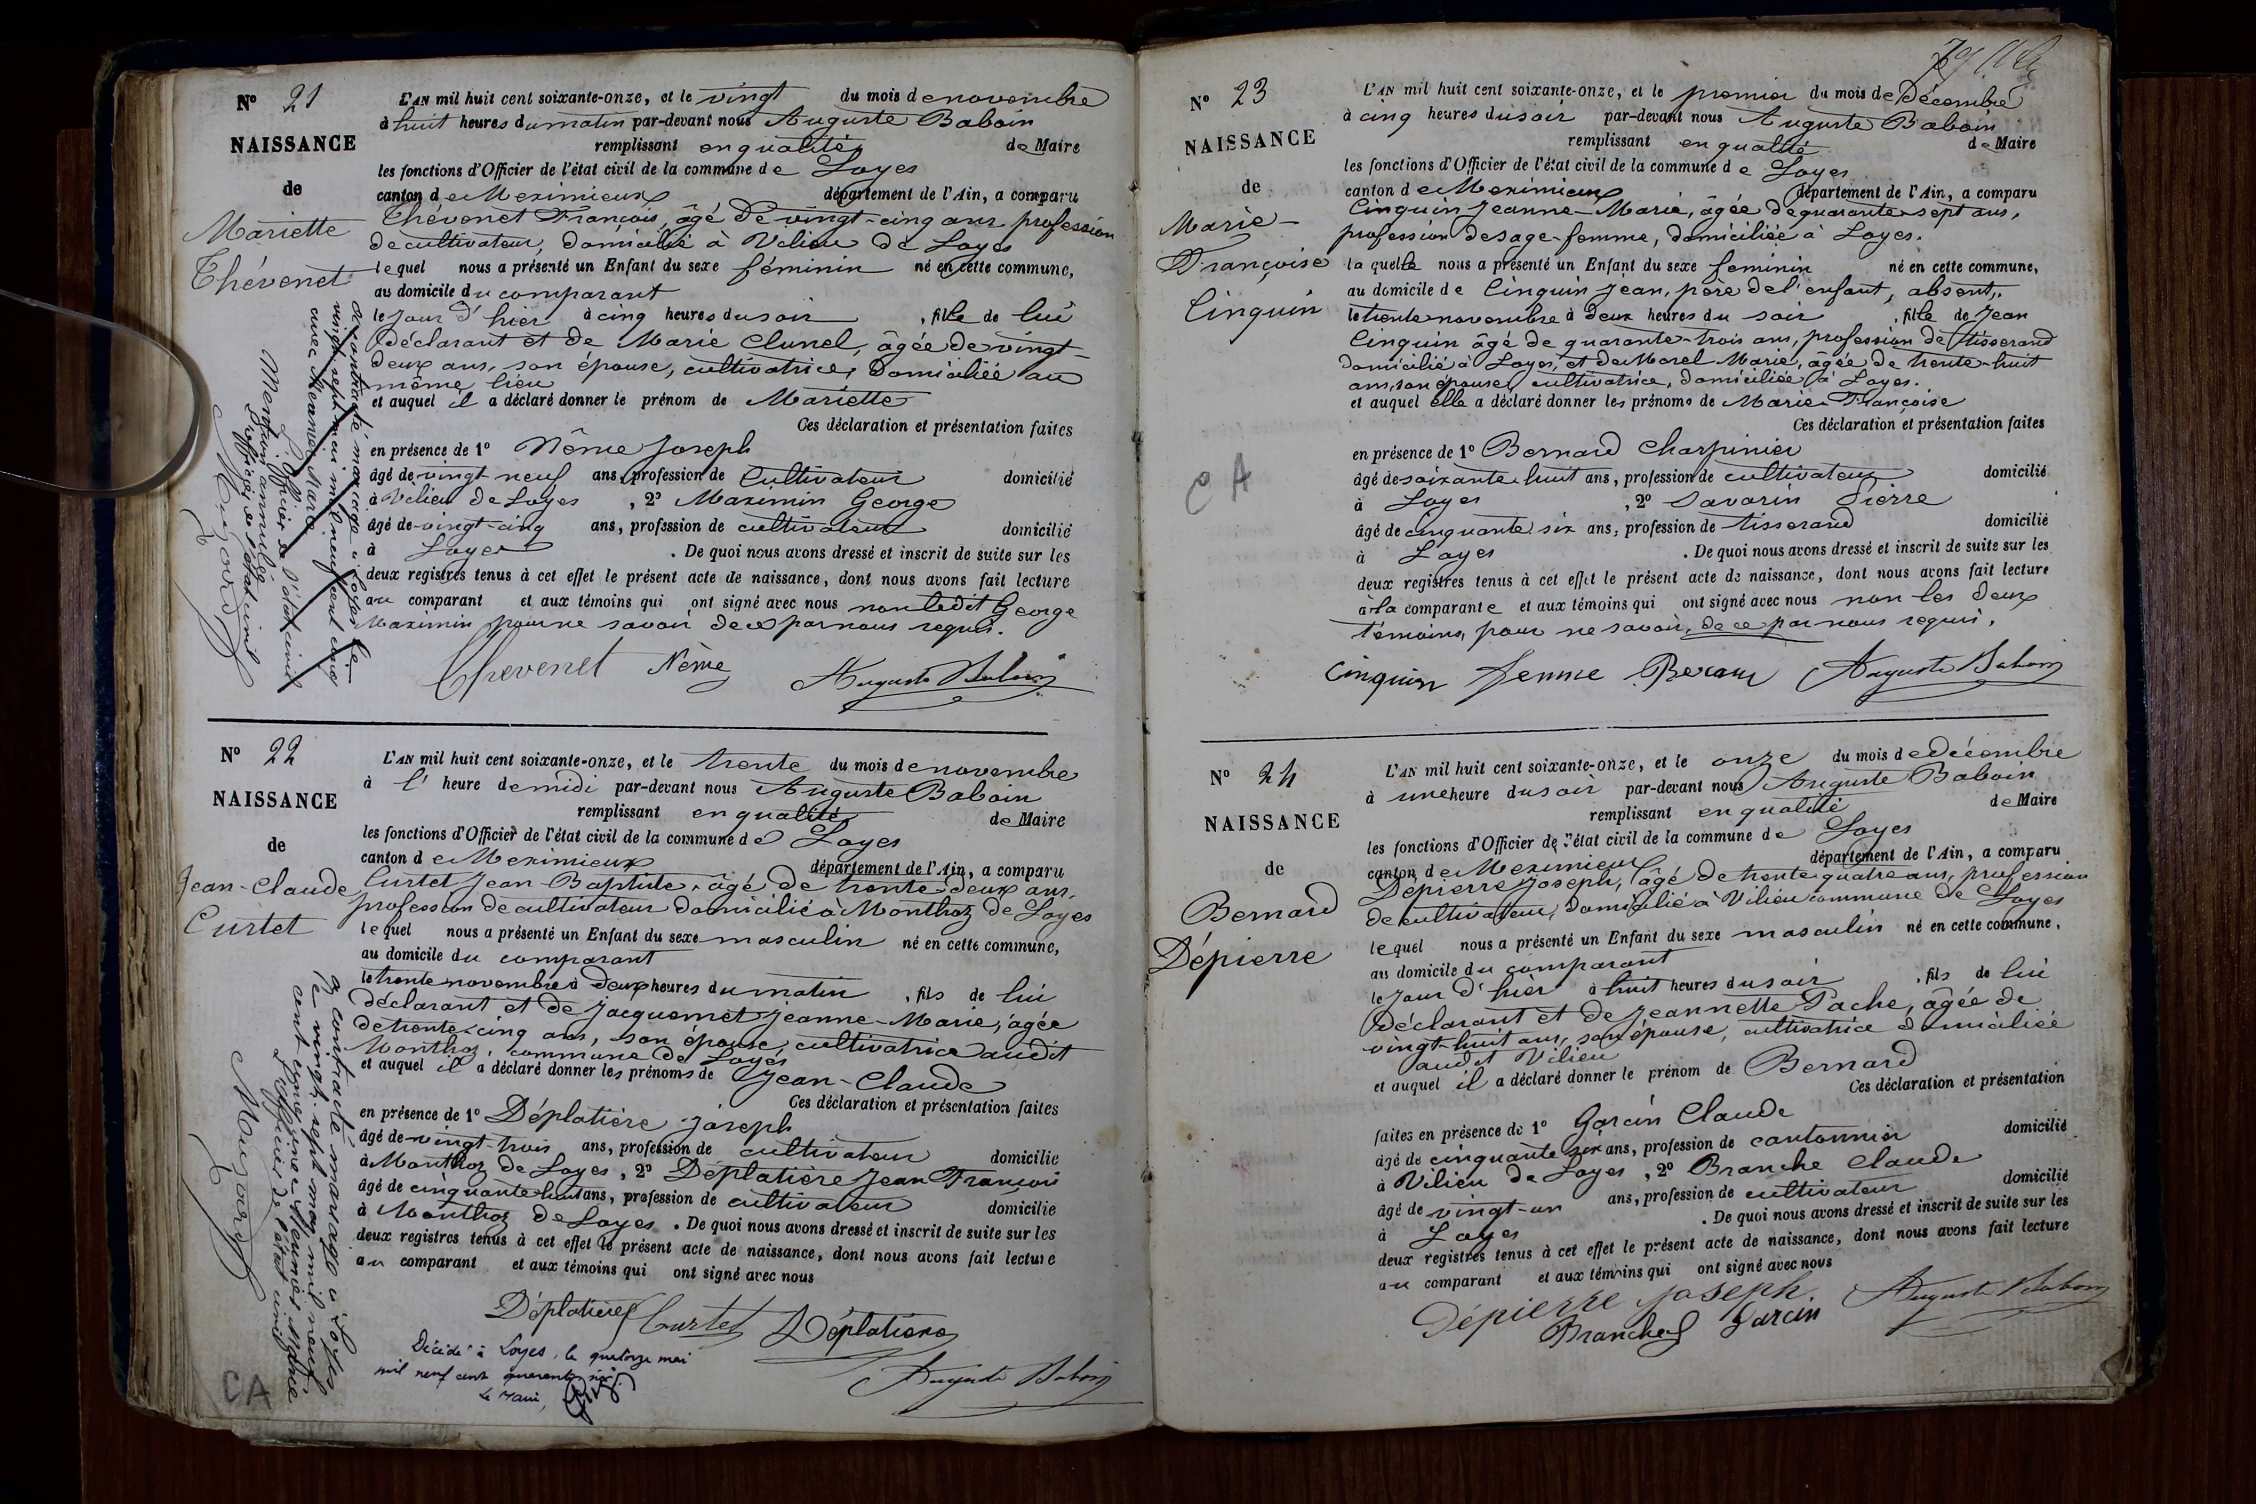 Nº 21
NAISSANCE
de
Mariette
Thévenet
L'AN mil huit cent soixante-onze, et le vingt du mois de novembre
à huit heures du matin par-devant nous Auguste Baboin
remplissant en qualité de Maire
les fonctions d'Officier de l'état civil de la commune de Loyes
canton de Meximieux département de l'Ain, a comparu
Thévenet François, âgé de vingt-cinq ans, profession
de cultivateur, domicilié à Vilieu de Loyes
lequel nous a présenté un Enfant du sexe féminin né en cette commune,
au domicile du comparant
le jour d'hier à cinq heures du soir, fille de lui
déclarant et de Marie Clunel, âgée de vingt-
deux ans, son épouse, cultivatrice, domiciliée au
même lieu
et auquel il a déclaré donner le prénom de Mariette
Ces déclaration et présentation faites
en présence de 1º Nême Joseph
âgé de vingt neuf ans, profession de cultivateur domicilié
à Vilieu de Loyes, 2º Maximin George
âgé de vingt-cinq ans, profession de cultivateur domicilié
à Loyes. De quoi nous avons dressé et inscrit de suite sur les
deux registres tenus à cet effet le présent acte de naissance, dont nous avons fait lecture
au comparant et aux témoins qui ont signé avec nous non ledit George
Maximin pour ne savoir de ce par nous requis.
Chevenet Nême Auguste Baboin
a contracté mariage à Loyes le
vingt sept mai mil neuf cent cinq
avec Meunier Marie
L'Officier de l'état civil
Mention annulée
L'officier de l'état civil
Nº 22
NAISSANCE
de
Jean-Claude
Curtet
L'AN mil huit cent soixante-onze, et le trente du mois de novembre
à l'heure de midi par-devant nous Auguste Baboin
remplissant en qualité de Maire
les fonctions d'Officier de l'état civil de la commune de Loyes
canton de Meximieux département de l'Ain, a comparu
Curtet Jean-Baptiste, âgé de trente deux ans,
profession de cultivateur domicilié à Monthoz de Loyes
lequel nous a présenté un Enfant du sexe masculin né en cette commune,
au domicile du comparant
le trente novembre à deux heures du matin, fils de lui
déclarant et de Jacquemet Jeanne-Marie, âgée
de trente-cinq ans, son épouse, cultivatrice audit
Monthoz, commune de Loyes
et auquel il a déclaré donner les prénoms de Jean-Claude
Ces déclaration et présentation faites
en présence de 1º Déplatière Joseph
âgé de vingt-trois ans, profession de cultivateur domicilié
à Monthoz de Loyes, 2º Déplatière Jean François
âgé de cinquante huit ans, profession de cultivateur domicilié
à Monthoz de Loyes. De quoi nous avons dressé et inscrit de suite sur les
deux registres tenus à cet effet le présent acte de naissance, dont nous avons fait lecture
au comparant et aux témoins qui ont signé avec nous
Déplatière Curtet Déplatière
Auguste Baboin
Décédé à Loyes, le quatorze mai
mil neuf cent quarante six.
Le Maire,
a contracté mariage à Loyes
le vingt sept mai mil neuf
cent cinq avec Meunier Marie
L'officier de l'état civil
CA
Nº 23
NAISSANCE
de
Marie-
Françoise
Cinquin
L'AN mil huit cent soixante-onze, et le premier du mois de Décembre
à cinq heures du soir par-devant nous Auguste Baboin
remplissant en qualité de Maire
les fonctions d'Officier de l'état civil de la commune de Loyes
canton de Meximieux département de l'Ain, a comparu
Cinquin Jeanne-Marie, âgée de quarante sept ans,
profession de sage-femme, domiciliée à Loyes.
laquelle nous a présenté un Enfant du sexe féminin né en cette commune,
au domicile de Cinquin Jean, père de l'enfant, absent,
le trente novembre à deux heures du soir, fille de Jean
Cinquin âgé de quarante-trois ans, profession de tisserand
domicilié à Loyes, et de Morel Marie, âgée de trente-huit
ans, son épouse, cultivatrice, domiciliée à Loyes.
et auquel elle a déclaré donner les prénoms de Marie Françoise
Ces déclaration et présentation faites
en présence de 1º Bernard Charpinier
âgé de soixante huit ans, profession de cultivateur domicilié
à Loyes, 2º Savarin Pierre
âgé de cinquante six ans, profession de tisserand domicilié
à Loyes. De quoi nous avons dressé et inscrit de suite sur les
deux registres tenus à cet effet le présent acte de naissance, dont nous avons fait lecture
à la comparante et aux témoins qui ont signé avec nous non les deux
témoins, pour ne savoir, de ce par nous requis.
Cinquin femme Auguste Baboin
CA
Nº 24
NAISSANCE
de
Bernard
Dépierre
L'AN mil huit cent soixante-onze, et le onze du mois de décembre
à une heure du soir par-devant nous Auguste Baboin
remplissant en qualité de Maire
les fonctions d'Officier de l'état civil de la commune de Loyes
canton de Meximieux département de l'Ain, a comparu
Dépierre Joseph, âgé de trente quatre ans, profession
de cultivateur, domicilié à Vilieu commune de Loyes
lequel nous a présenté un Enfant du sexe masculin né en cette commune,
au domicile du comparant
le jour d'hier à huit heures du soir, fils de lui
déclarant et de Jeannette Pache, âgée de
vingt-huit ans, son épouse, cultivatrice domiciliée
audit Vilieu
et auquel il a déclaré donner le prénom de Bernard
Ces déclaration et présentation
faites en présence de 1º Garcin Claude
âgé de cinquante six ans, profession de cantonnier domicilié
à Vilieu de Loyes, 2º Branche Claude
âgé de vingt-un ans, profession de cultivateur domicilié
à Loyes. De quoi nous avons dressé et inscrit de suite sur les
deux registres tenus à cet effet le présent acte de naissance, dont nous avons fait lecture
au comparant et aux témoins qui ont signé avec nous
Dépierre Joseph. Auguste Baboin
Branche Garcin